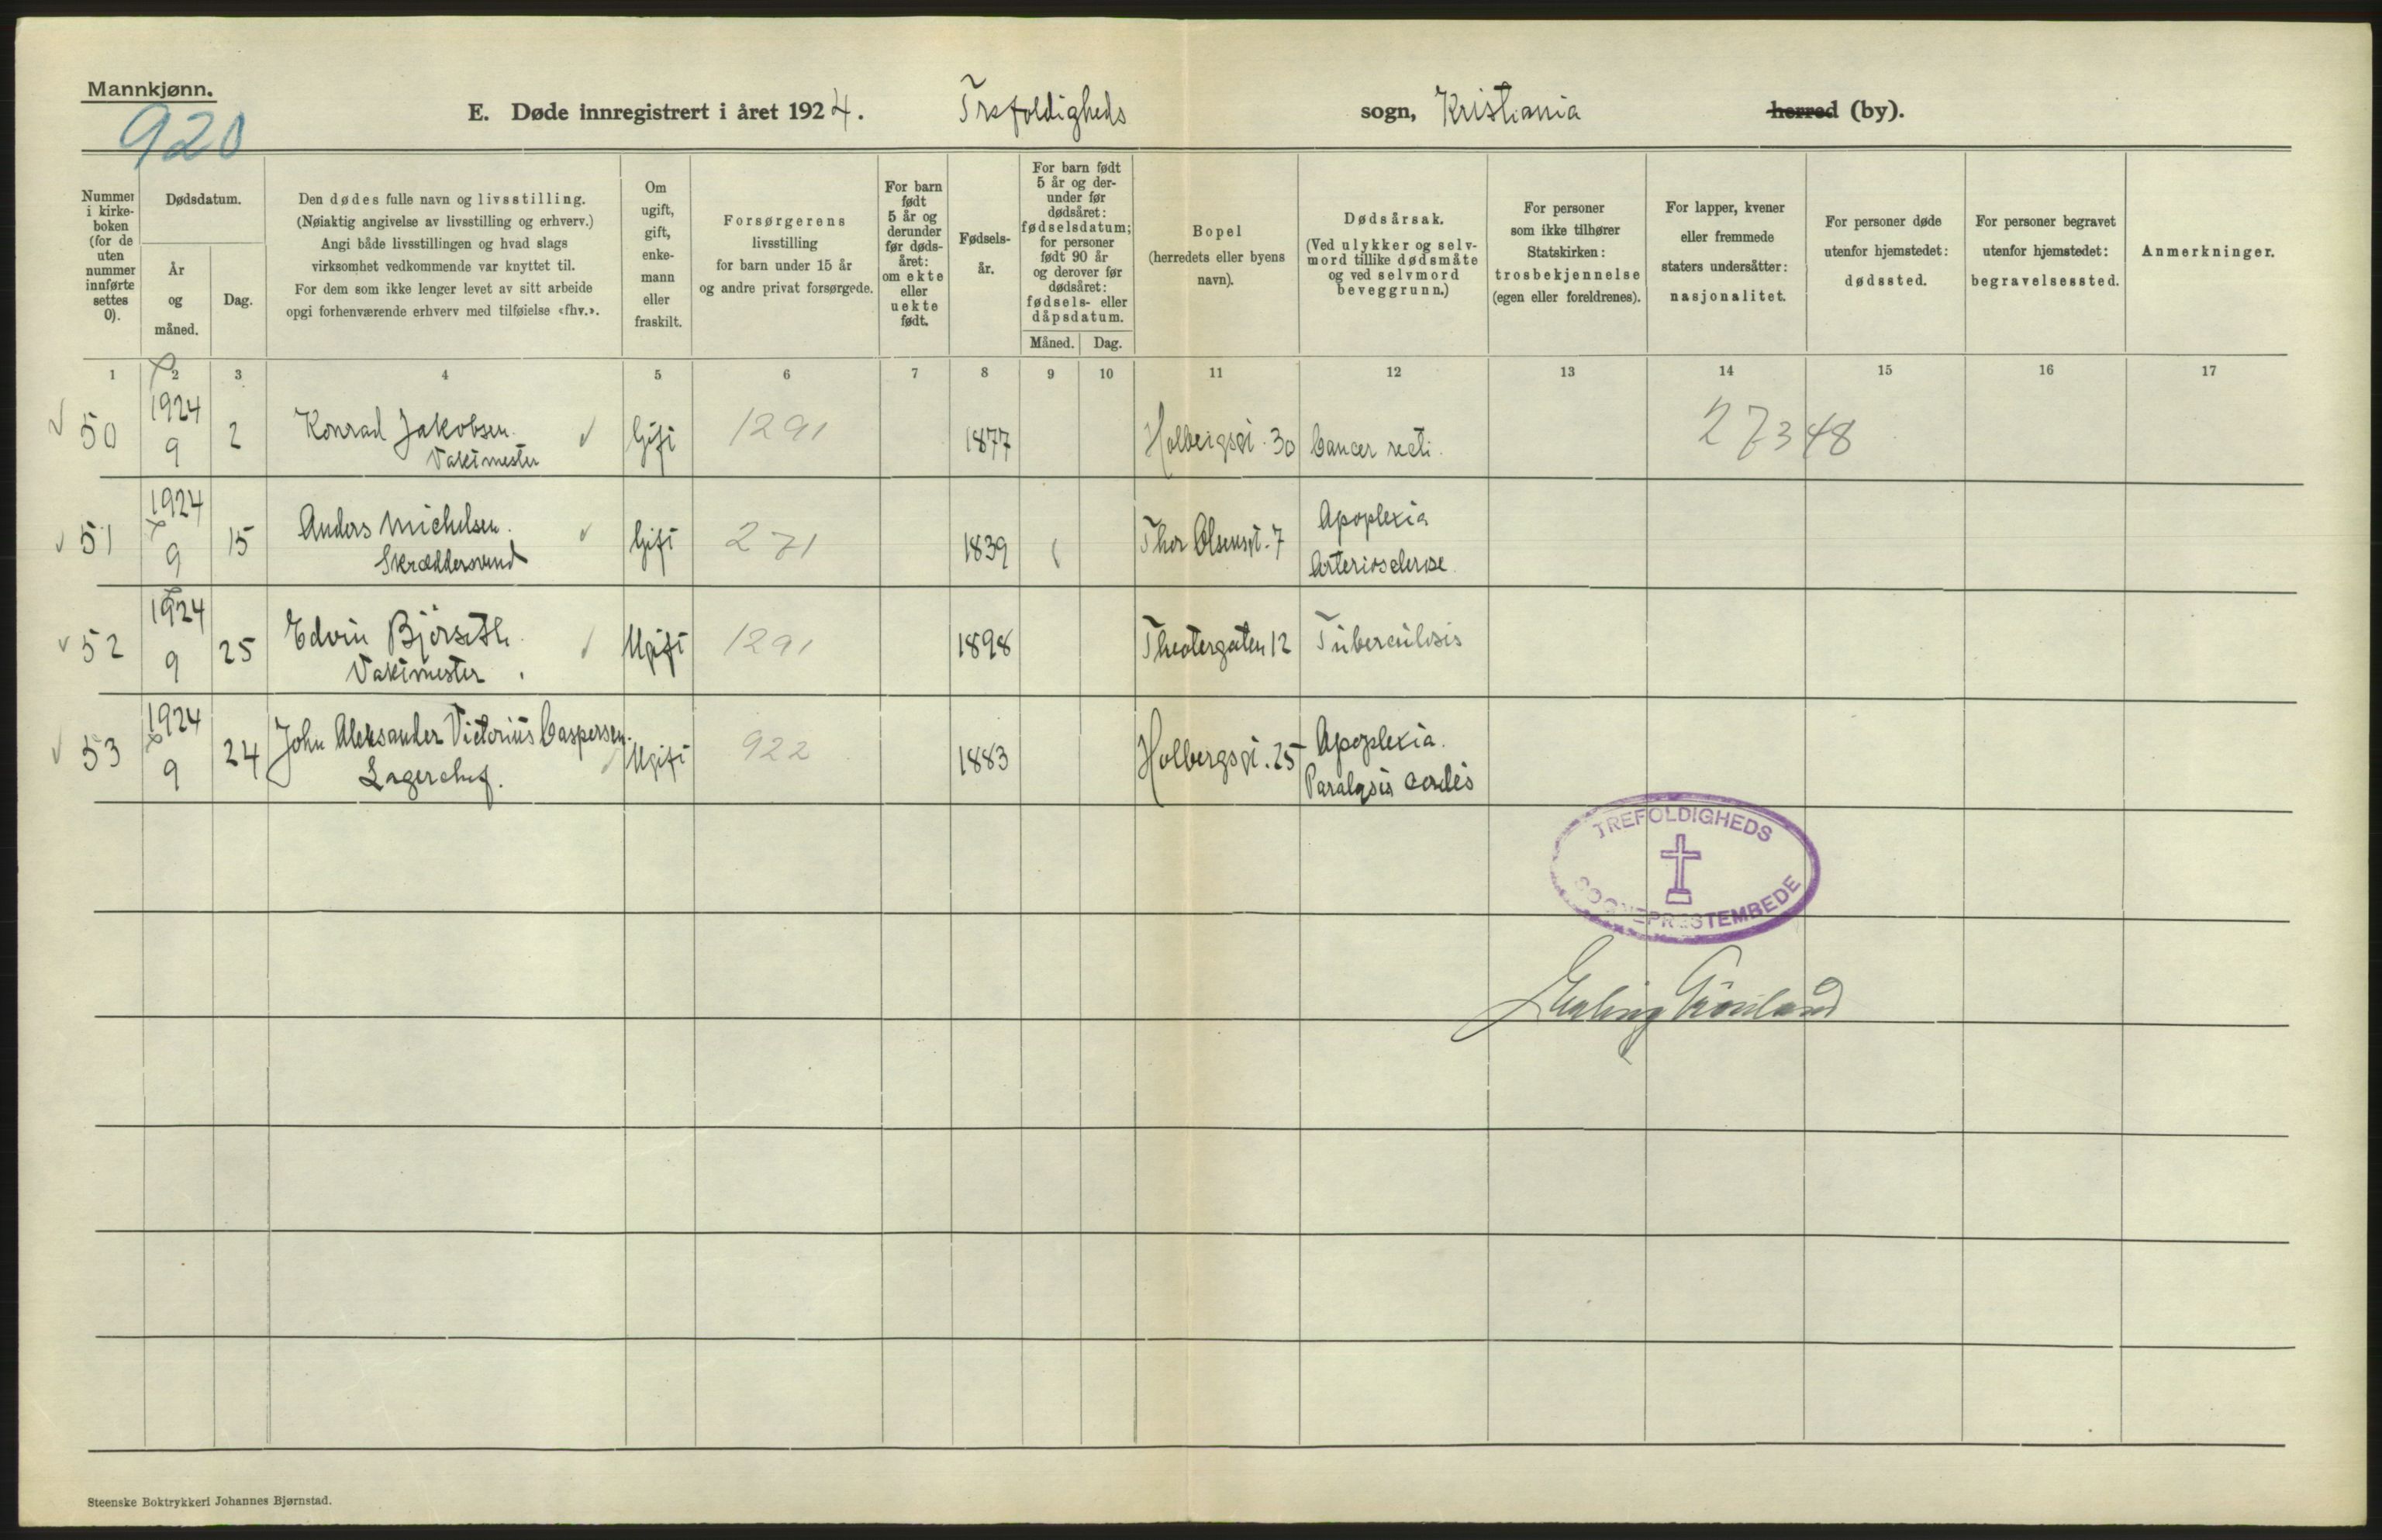 Mannkjønn.
920
E. Døde innregistrert i året 1924. Trefoldigheds sogn, Kristiania herred (by).
Nummer i kirke-boken (for de uten nummer innførte settes 0).
Dødsdatum.
År og måned.
Dag.
Den dødes fulle navn og livsstilling.
(Nøiaktig angivelse av livsstilling og erhverv.)
Angi både livsstillingen og hvad slags
virksomhet vedkommende var knyttet til.
For dem som ikke lenger levet av sitt arbeide
opgi forhenværende erhverv med tilføielse «fhv.».
Om ugift, gift, enke-mann eller fraskilt.
Forsørgerens
livsstilling
for barn under 15 år
og andre privat forsørgede.
For barn født 5 år og derunder før døds-året: om ekte eller uekte født.
Fødsels-år.
For barn født 5 år og der-under før dødsåret: fødselsdatum; for personer født 90 år og derover før dødsåret: fødsels- eller dåpsdatum.
Måned. Dag.
Bopel
(herredets eller byens
navn).
Dødsårsak.
(Ved ulykker og selv-
mord tillike dødsmåte
og ved selvmord
beveggrunn.)
For personer
som ikke tilhører
Statskirken:
trosbekjennelse
(egen eller foreldrenes).
For lapper, kvener
eller fremmede
staters undersåtter:
nasjonalitet.
For personer døde
utenfor hjemstedet:
dødssted.
For personer begravet
utenfor hjemstedet:
begravelsessted.
Anmerkninger.
1 2 3 4 5 6 7 8 9 10 11 12 13 14 15 16 17
50 1924 9 2 Konrad Jakobsen. Vaktmester Gift 1291 1877 Holbergsgt. 30 Cancer recti. 27348
51 1924 9 15 Anders Michelsen. Skræddersvend Gift 271 1839 Thor Olsensgt. 7 Apoplexia Arteriosclerose
52 1924 9 25 Edvin Björseth. Vaktmester. Ugift 1291 1898 Theatergaten 12 Tuberculosis
53 1924 9 24 John Aleksander Victorius Caspersen. Lagerchef. Ugift 922 1883 Holbergsgt. 25 Apoplexia. Paralysis cordis
TREFOLDIGHEDS
SOGNEPRESTEMBEDE
Steenske Boktrykkeri Johannes Bjørnstad.